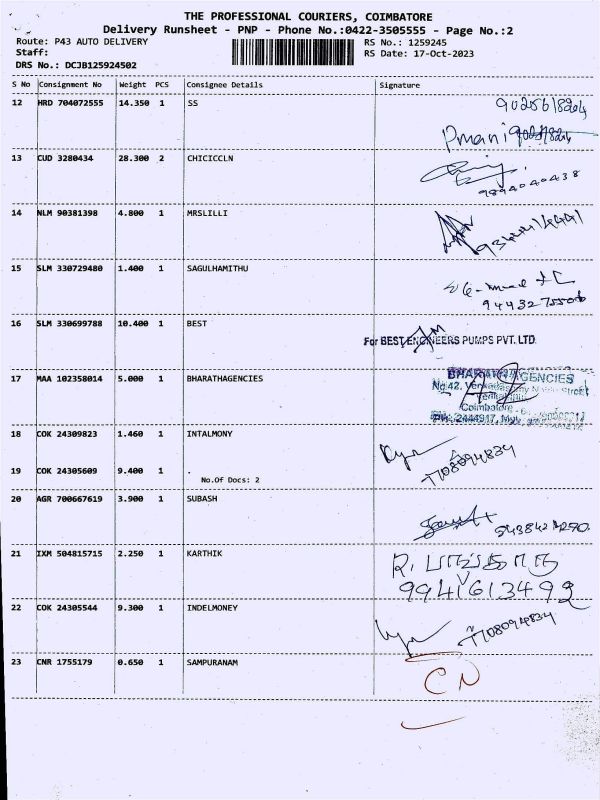 THE PROFESSIONAL COURIERS, COIMBATORE
Delivery Runsheet - PNP - Phone No.:0422-3505555 - Page No.:2
Route: P43 AUTO DELIVERY RS No.: 1259245
Staff: RS Date: 17-Oct-2023
DRS No.: DCJB125924502
S No Consignment No Weight PCS Consignee Details Signature
12 HRD 704072555 14.350 1 SS
Pmani
13 CUD 3280434 28.300 2 CHICICCLN
9894040438
14 NLM 90381398 4.800 1 MRSLILLI
15 SLM 330729480 1.400 1 SAGULHAMITHU
9443275506
16 SLM 330699788 10.400 1 BEST
For BEST ENGINEERS PUMPS PVT. LTD.
17 MAA 102358014 5.000 1 BHARATHAGENCIES
BHARATH AGENCIES
No.42, Street
Coimbatore
18 COK 24309823 1.460 1 INTALMONY
7708094834
19 COK 24305609 9.400 1 .
No.Of Docs: 2
20 AGR 700667619 3.900 1 SUBASH
21 IXM 504815715 2.250 1 KARTHIK
9941613492
22 COK 24305544 9.300 1 INDELMONEY
7708094834
23 CNR 1755179 0.650 1 SAMPURANAM
CN